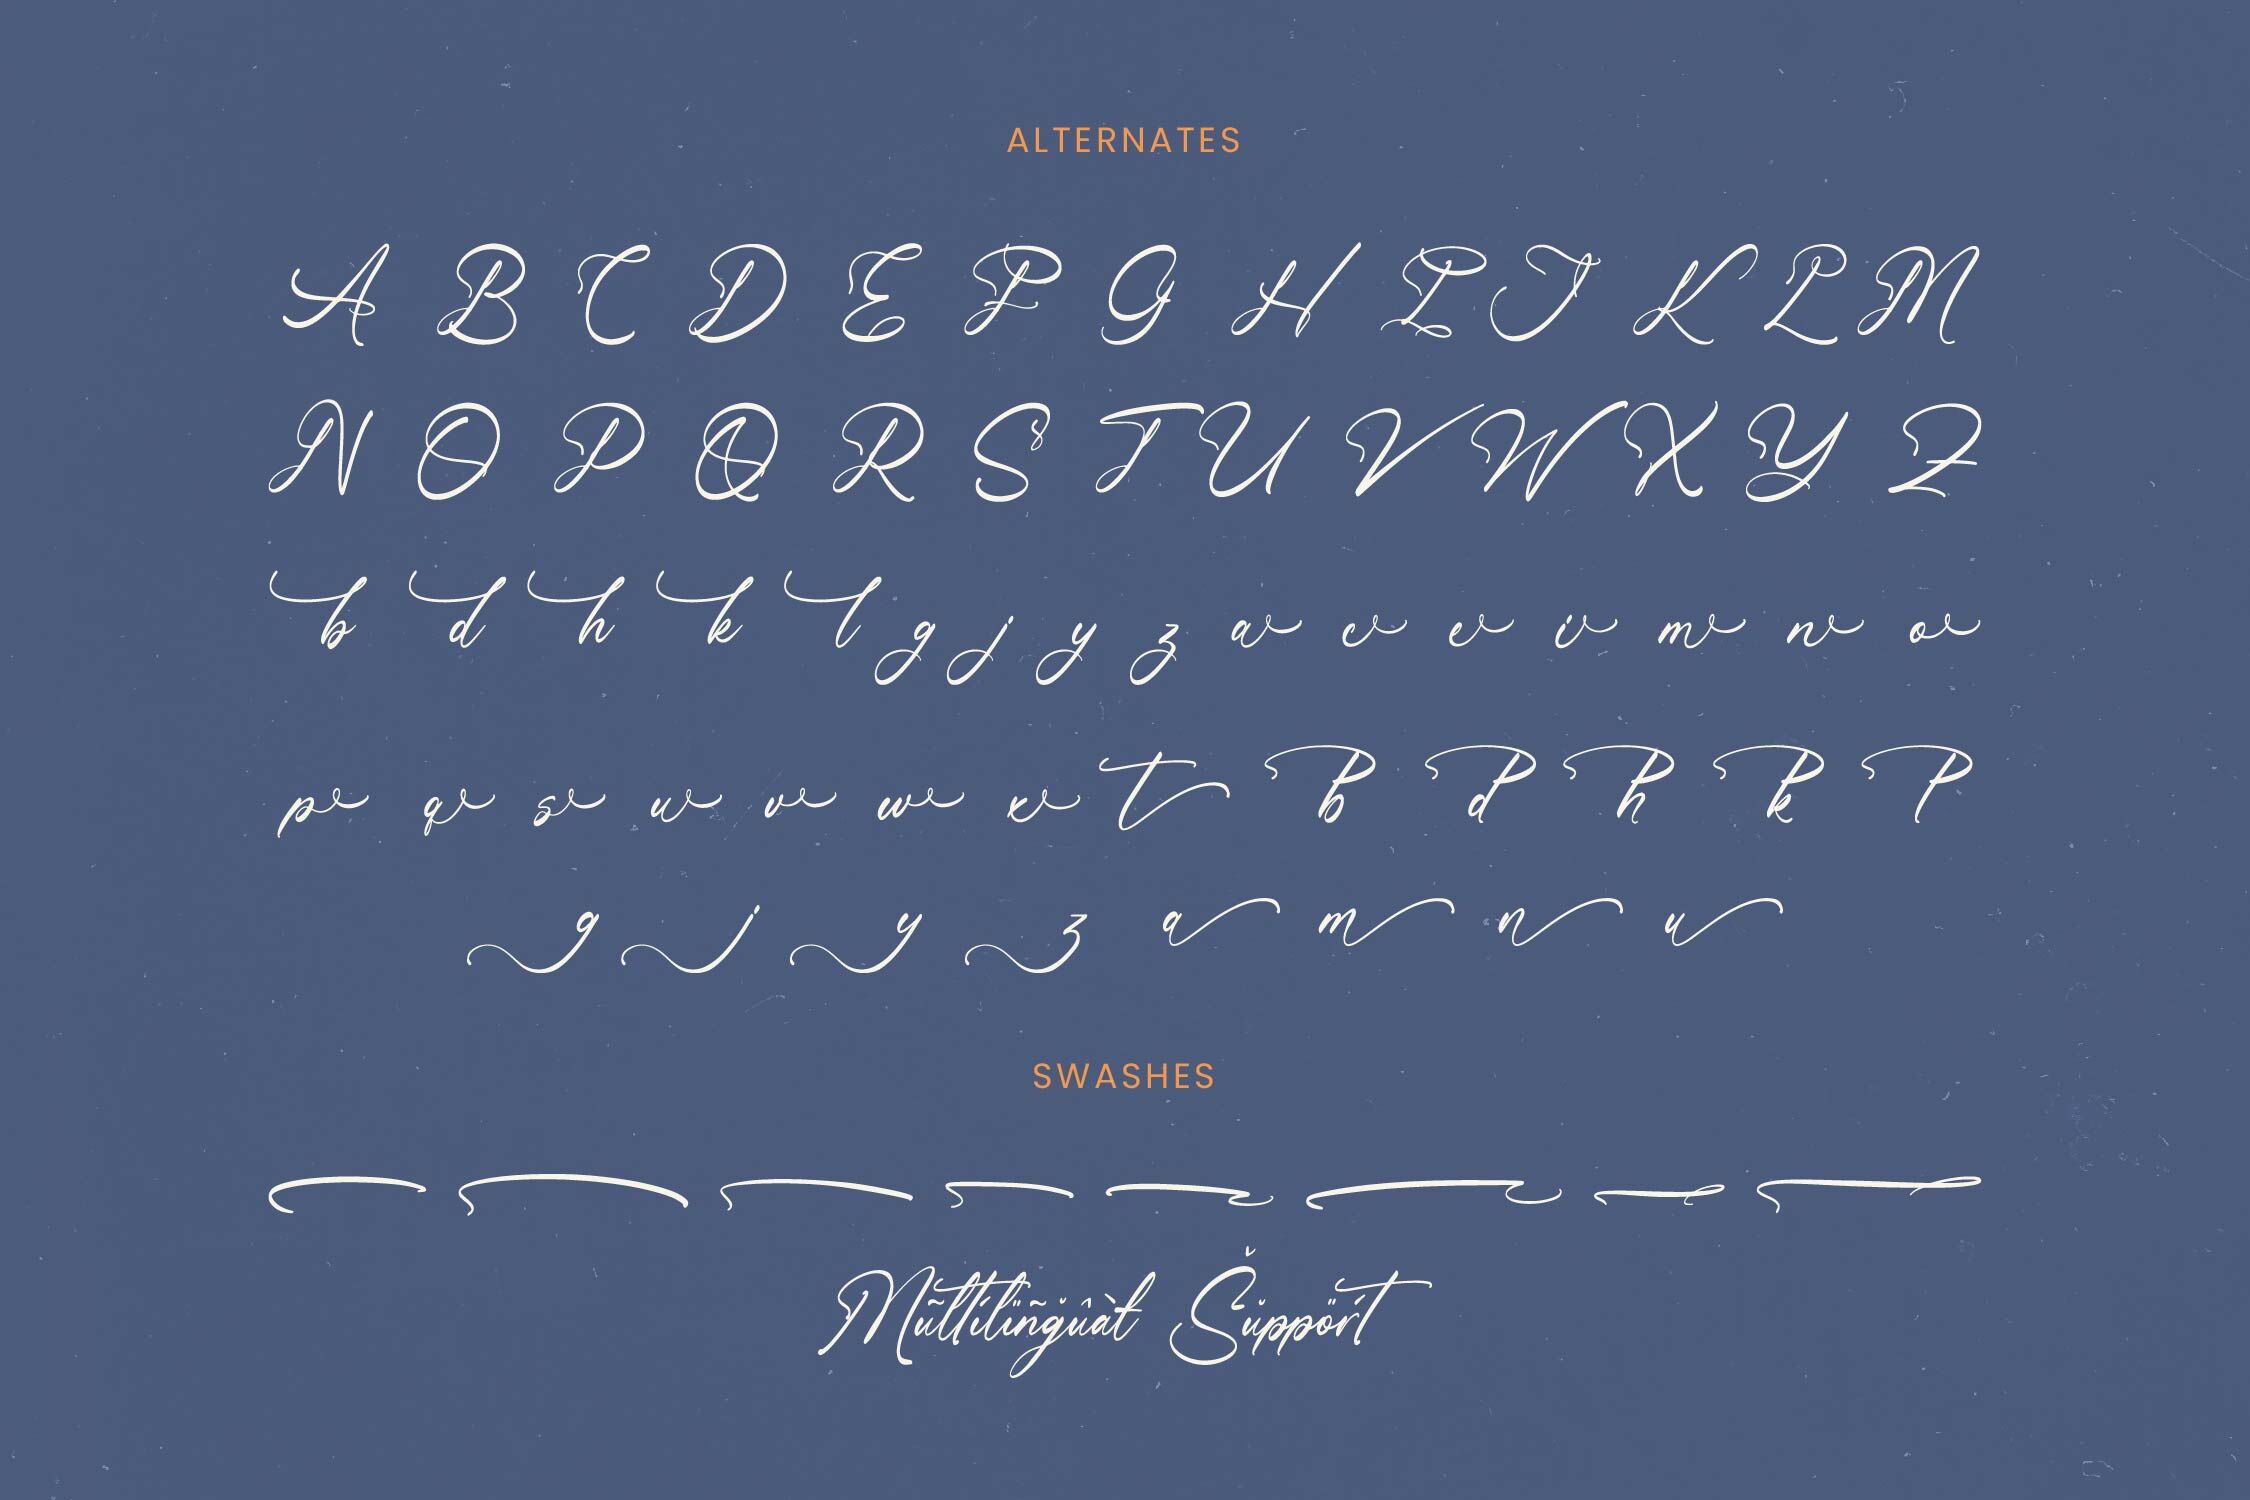 ALTERNATES
A B C D E F G H I J K L M
N O P Q R S T U V W X Y Z
b d h k l g j y z a c e i m n o
p q s u v w x t b d h k l
g j y z a m n u
SWASHES
Mũltílïñġûàl Šúppört